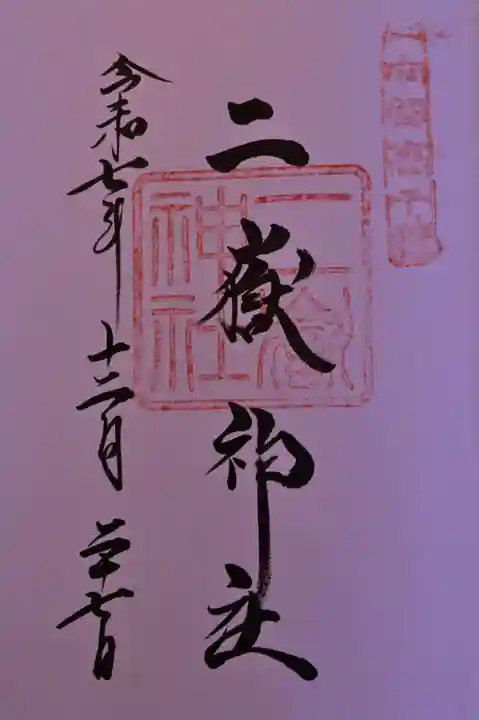 二嶽神社
二嶽神社
令和七年 十二月 廿七日